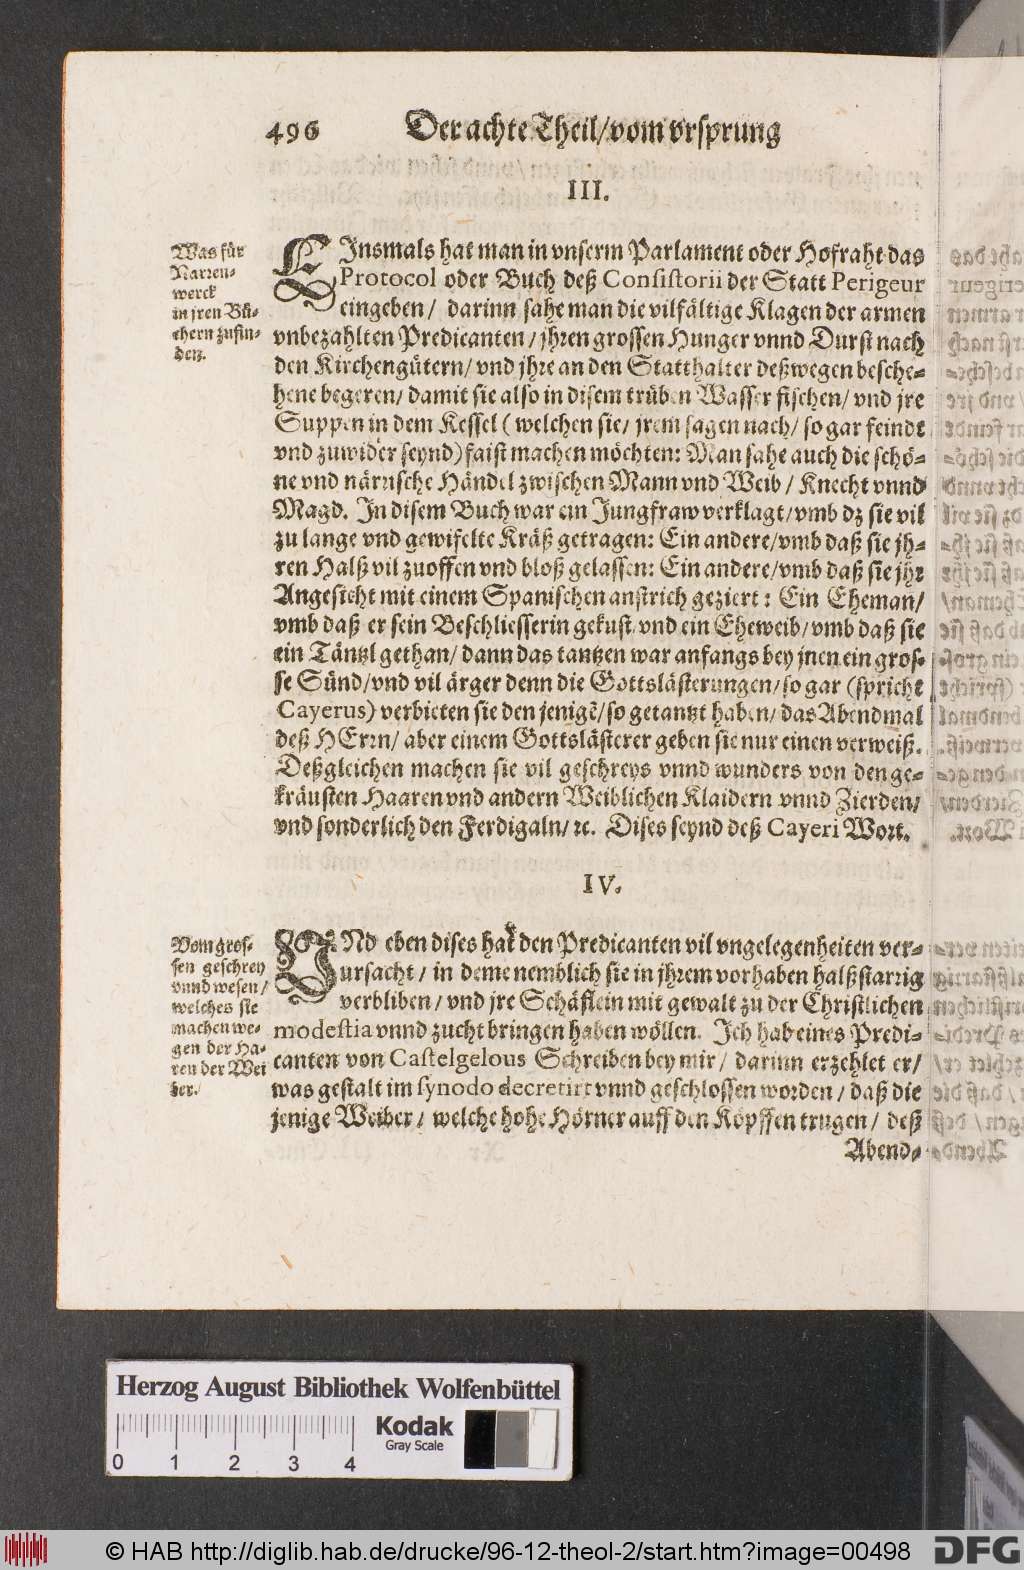 496 Der achte Theil/ vom vrsprung
III.
Was für
Narren-
werck
in jren Bü-
chern zufin-
den.
EInsmals hat man in vnserm Parlament oder Hofraht das
Protocol oder Buch deß Consistorii der Statt Perigeur
eingeben/ darinn sahe man die vilfältige Klagen der armen
vnbezahlten Predicanten/ jhren grossen Hunger vnnd Durst nach
den Kirchengütern/ vnd jhre an den Statthalter deßwegen besche-
hene begeren/ damit sie also in disem trüben Wasser fischen/ vnd jre
Suppen in dem Kessel (welchen sie/ jrem sagen nach/ so gar feindt
vnd zuwider seynd) faist machen möchten: Man sahe auch die schö-
ne vnd närrische Händel zwischen Mann vnd Weib/ Knecht vnnd
Magd. In disem Buch war ein Jungfraw verklagt/ vmb dz sie vil
zu lange vnd gewifelte Kräß getragen: Ein andere/ vmb daß sie jh-
ren Halß vil zuoffen vnd bloß gelassen: Ein andere/ vmb daß sie jhr
Angesicht mit einem Spanischen anstrich geziert: Ein Eheman/
vmb daß er sein Beschliesserin gekust/ vnd ein Eheweib/ vmb daß sie
ein Täntzl gethan/ dann das tantzen war anfangs bey jnen ein gros-
se Sünd/ vnd vil ärger denn die Gottslästerungen/ so gar (spricht
Cayerus) verbieten sie den jenigẽ/ so getantzt haben/ das Abendmal
deß HErrn/ aber einem Gottslästerer geben sie nur einen verweiß.
Deßgleichen machen sie vil geschreys vnnd wunders von den ge-
kräusten Haaren vnd andern Weiblichen Klaidern vnnd Zierden/
vnd sonderlich den Ferdigaln/ ꝛc. Dises seynd deß Cayeri Wort.
IV.
Vom gros-
sen geschrey
vnnd wesen/
welches sie
machen we-
gen der Ha-
ren der Wei
ber.
VNd eben dises hat den Predicanten vil vngelegenheiten ver-
ursacht/ in deme nemblich sie in jhrem vorhaben halßstarrig
verbliben/ vnd jre Schäflein mit gewalt zu der Christlichen
modestia vnnd zucht bringen haben wöllen. Ich hab eines Predi-
canten von Castelgelous Schreiben bey mir/ darinn erzehlet er/
was gestalt im synodo decretirt vnnd geschlossen worden/ daß die
jenige Weiber/ welche hohe Hörner auff den Köpffen trugen/ deß
Abend-
Herzog August Bibliothek Wolfenbüttel
Kodak
Gray Scale
0 1 2 3 4
© HAB http://diglib.hab.de/drucke/96-12-theol-2/start.htm?image=00498
DFG